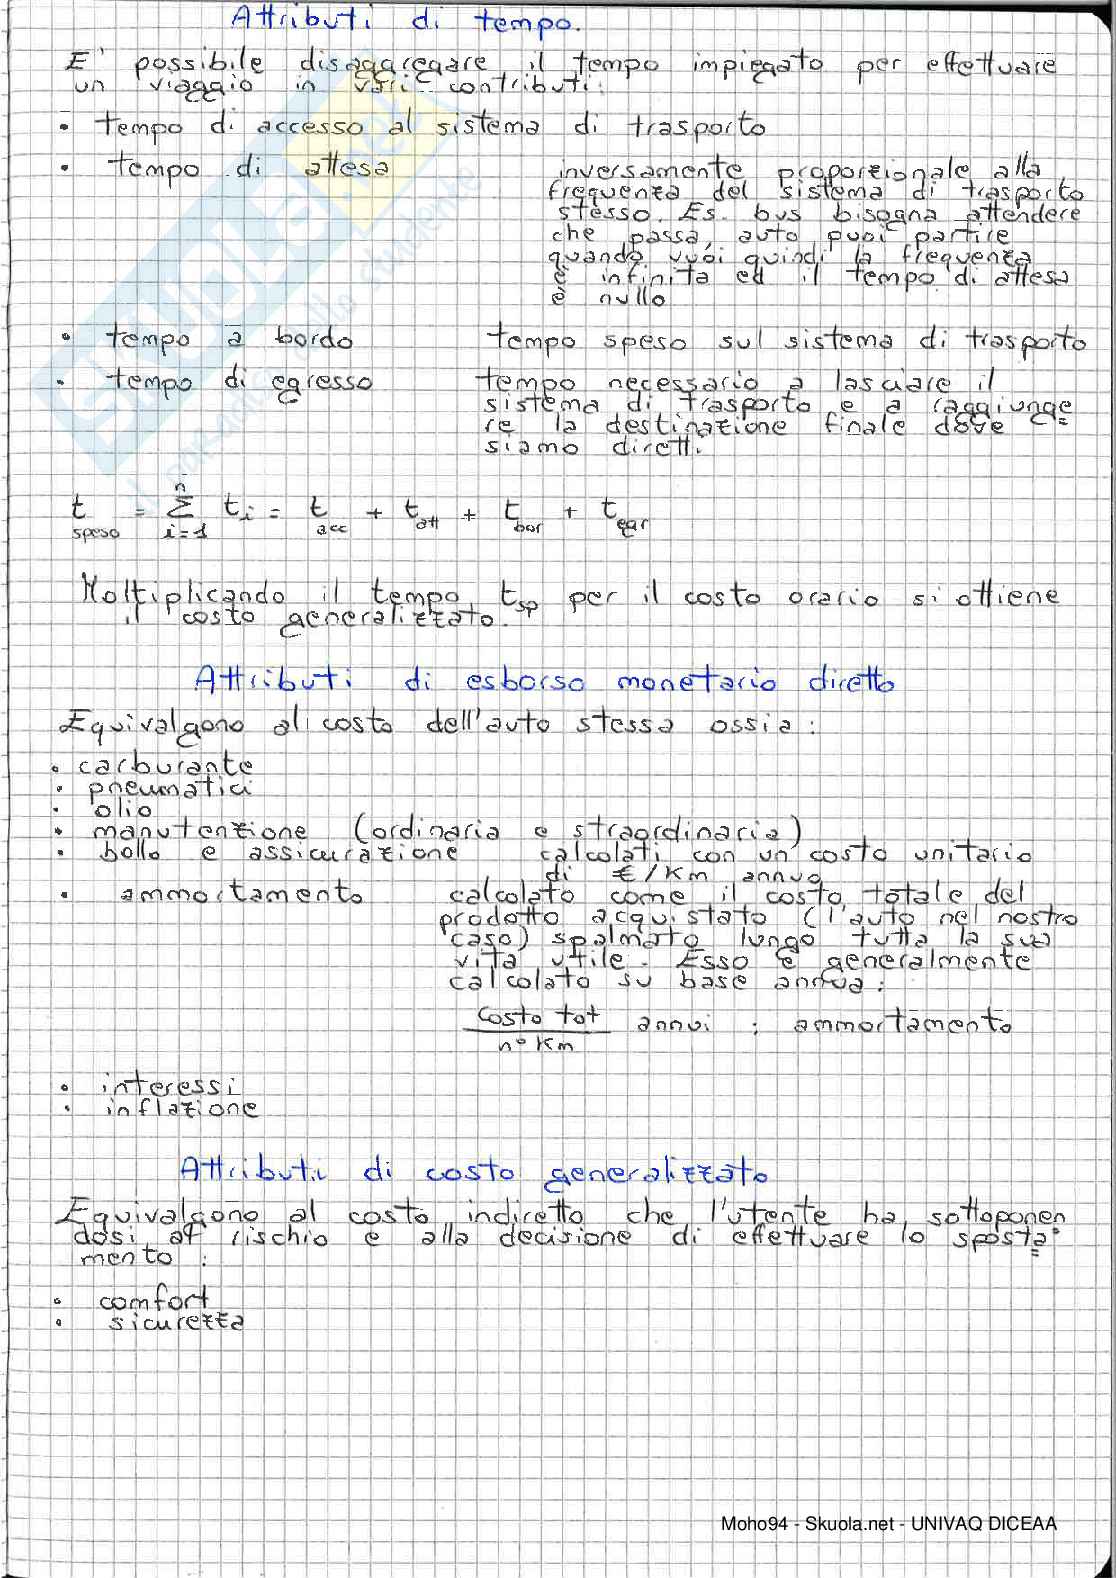 Attributi di tempo.
E' possibile disaggregare il tempo impiegato per effettuare
un viaggio in vari contributi:
• tempo di accesso al sistema di trasporto
• tempo di attesa
inversamente proporzionale alla
frequenza del sistema di trasporto
stesso. Es. bus bisogna attendere
che passa, auto puoi partire
quando vuoi quindi la frequenza
è infinita ed il tempo di attesa
è nullo
• tempo a bordo tempo speso sul sistema di trasporto
• tempo di egresso tempo necessario a lasciare il
sistema di trasporto e a raggiunge
re la destinazione finale dove
siamo diretti.
t speso = Σ i=1 n ti = t acc + t att + t bor + t egr
Moltiplicando il tempo tsp per il costo orario si ottiene
il costo generalizzato.
Attributi di esborso monetario diretto
Equivalgono al costo dell'auto stessa ossia:
• carburante
• pneumatici
• olio
• manutenzione (ordinaria e straordinaria)
• bollo e assicurazione calcolati con un costo unitario
di €/Km annuo
• ammortamento calcolato come il costo totale del
prodotto acquistato (l'auto nel nostro
caso) spalmato lungo tutta la sua
vita utile. Esso è generalmente
calcolato su base annua:
costo tot / n° Km annui : ammortamento
• interessi
• inflazione
Attributi di costo generalizzato
Equivalgono al costo indiretto che l'utente ha sottoponen
dosi al rischio e alla decisione di effettuare lo sposta
mento:
• comfort
• sicurezza
Moho94 - Skuola.net - UNIVAQ DICEAA